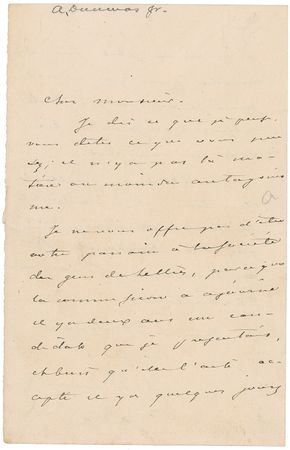 A. Dumas Jr.
Cher monsieur.
Je dis ce que je pense,
vous dites ce que vous pen
sez; il n'y a pas là ma-
tière au moindre antagonis
me.
Je ne vous offre pas d'être
votre parrain à la société
des gens de lettres, parce que
la commission a ajourné
il y a deux ans un can-
didat que je présentais,
et bien qu'elle l'ait ac-
cepté il y a quelques jours